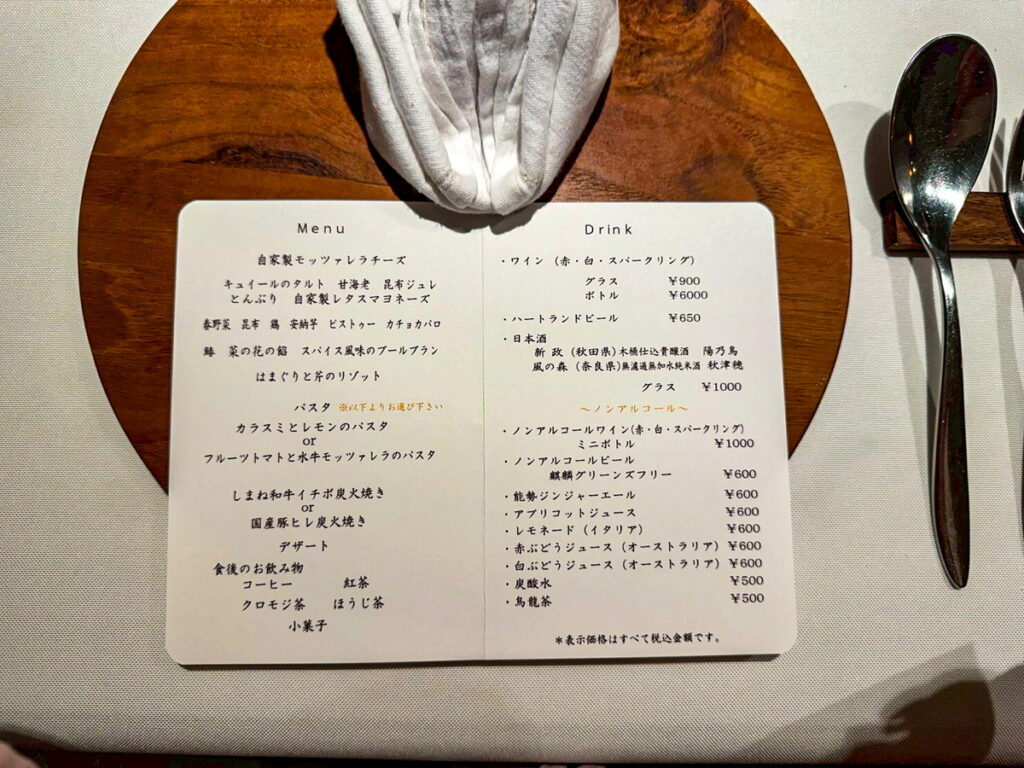 Menu
自家製モッツァレラチーズ
キュイールのタルト 甘海老 昆布ジュレ
とんぶり 自家製レタスマヨネーズ
春野菜 昆布 鶏 安納芋 ピストゥー カチョカバロ
鰆 菜の花の餡 スパイス風味のブールブラン
はまぐりと芹のリゾット
パスタ ※以下よりお選び下さい
カラスミとレモンのパスタ
or
フルーツトマトと水牛モッツァレラのパスタ
しまね和牛イチボ炭火焼き
or
国産豚ヒレ炭火焼き
デザート
食後のお飲み物
コーヒー 紅茶
クロモジ茶 ほうじ茶
小菓子
Drink
・ワイン (赤・白・スパークリング)
グラス ¥900
ボトル ¥6000
・ハートランドビール ¥650
・日本酒
新政 (秋田県)木桶仕込貴醸酒 陽乃鳥
風の森 (奈良県)無濾過無加水純米酒 秋津穂
グラス ¥1000
～ノンアルコール～
・ノンアルコールワイン(赤・白・スパークリング)
ミニボトル ¥1000
・ノンアルコールビール
麒麟グリーンズフリー ¥600
・能勢ジンジャーエール ¥600
・アプリコットジュース ¥600
・レモネード (イタリア) ¥600
・赤ぶどうジュース (オーストラリア) ¥600
・白ぶどうジュース (オーストラリア) ¥600
・炭酸水 ¥500
・烏龍茶 ¥500
＊表示価格はすべて税込金額です。